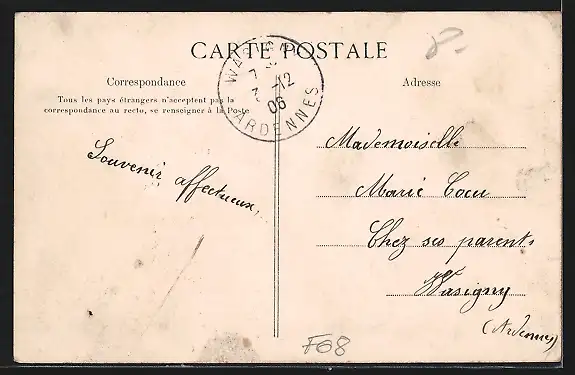 CARTE POSTALE
WASIGNY
7
3 -12
06
ARDENNES
Correspondance
Tous les pays étrangers n'acceptent pas la
correspondance au recto, se renseigner à la Poste
Souvenir affectueux,
Adresse
Mademoiselle
Marie Cocu
Chez ses parents
Wasigny
(Ardennes)
8-
F68